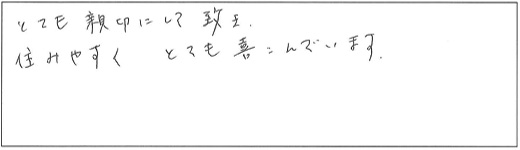 とても親切にして致き.
住みやすく とても喜こんでいます.